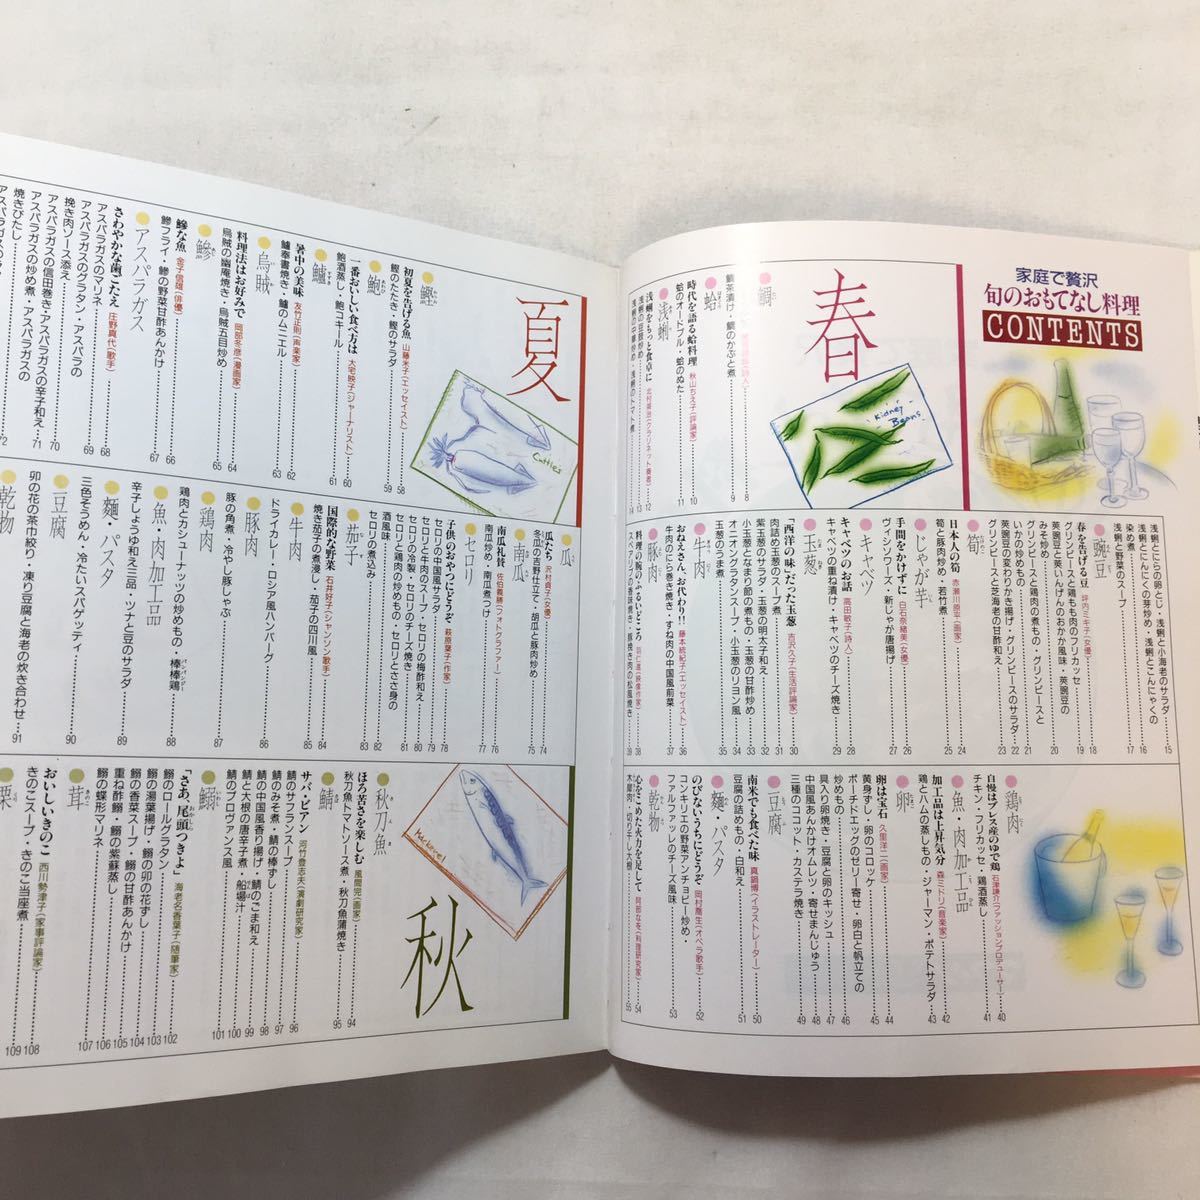 家庭で贅沢
旬のおもてなし料理
CONTENTS
春
Kidney Beans
鯛
鯛茶漬け・鯛のかぶと煮
8
9
蛤
時代を語る蛤料理 秋山ちえ子(評論家)
10
蛤のオードブル・蛤のぬた
11
浅蜊
浅蜊をもっと食卓に 北村英治(クラリネット奏者)
12
浅蜊の豆鼓炒め
13
浅蜊の中華炒め・浅蜊のトマト煮
14
浅蜊とにらの卵とじ・浅蜊と小海老のサラダ
15
浅蜊とにんにくの芽炒め・浅蜊とこんにゃくの
染め煮
16
浅蜊と野菜のスープ
17
豌豆
春を告げる豆 坪内ミキ子(女優)
18
グリンピースと鶏もも肉のフリカッセ
19
豌豆と莢いんげんのおかか風味・莢豌豆の
みそ炒め
20
グリンピースと鶏肉の煮もの・グリンピースと
いかの炒めもの
21
莢豌豆の変わりかき揚げ・グリンピースのサラダ
22
グリンピースと芝海老の甘酢和え
23
筍
日本人の筍 赤瀬川原平(画家)
24
筍と豚肉炒め・若竹煮
25
じゃが芋
手間をかけずに 白石奈緒美(女優)
26
ヴィシソワーズ・新じゃが唐揚げ
27
キャベツ
キャベツのお話 高田敏子(詩人)
28
キャベツの重ね漬け・キャベツのチーズ焼き
29
玉葱
“西洋の味”だった玉葱 吉沢久子(生活評論家)
30
肉詰め玉葱のスープ煮
31
紫玉葱のサラダ・玉葱の明太子和え
32
小玉葱となまり節の煮もの・玉葱の甘酢炒め
33
オニオングラタンスープ・小玉葱のリヨン風
34
玉葱のうま煮
35
牛肉
おねえさん、お代わり!! 藤本統紀子(エッセイスト)
36
牛肉のにら巻き焼き・すね肉の中国風前菜
37
豚肉
料理の腕のふるいどころ 羽仁進(映像作家)
38
スペアリブの香味焼き・豚挽き肉の松風焼き
39
鶏肉
自慢はブレス産のゆで鶏 石津謙介(ファッションプロデューサー)
40
チキン・フリカッセ・鶏酒蒸し
41
魚・肉加工品
加工品は上昇気分 森ミドリ(音楽家)
42
鶏とハムの蒸しもの・ジャーマン・ポテトサラダ
43
卵
卵は宝石 久里洋二(画家)
44
黄身ずし・卵のコロッケ
45
ポーチドエッグのゼリー寄せ・卵白と帆立ての
炒めもの
46
具入り卵焼き・豆腐と卵のキッシュ
47
中国風あんかけオムレツ・寄せまんじゅう
48
三種のココット・カステラ焼き
49
豆腐
南米でも食べた味 真鍋博(イラストレーター)
50
豆腐の詰めもの・白和え
51
麺・パスタ
のびないうちにどうぞ 岡村喬生(オペラ歌手)
52
コンキリエの野菜アンチョビー炒め・
ファルファッレのチーズ風味
53
乾物
心をこめた火力を足して 阿部なを(料理研究家)
54
木犀肉・切り干し大根
55
夏
Cuttles
鰹
初夏を告げる魚 山藤米子(エッセイスト)
58
鰹のたたき・鰹のサラダ
59
鮑
一番おいしい食べ方は 大宅映子(ジャーナリスト)
60
鮑酒蒸し・鮑コキール
61
鱸
暑中の美味 友竹正則(声楽家)
62
鱸奉書焼き・鱸のムニエル
63
烏賊
料理法はお好みで 岡部冬彦(漫画家)
64
烏賊の幽庵焼き・烏賊五目炒め
65
鯵
鯵な魚 金子信雄(俳優)
66
鯵フライ・鯵の野菜甘酢あんかけ
67
アスパラガス
さわやかな歯ごたえ 庄野真代(歌手)
68
アスパラガスのマリネ
69
アスパラガスのグラタン・アスパラの
挽き肉ソース添え
70
アスパラガスの信田巻き・アスパラガスの辛子和え
71
アスパラガスの炒め煮・アスパラガスの
焼きびたし
72
瓜
瓜たち 沢村貞子(女優)
74
冬瓜の吉野仕立て・胡瓜と豚肉炒め
75
南瓜
南瓜礼賛 佐伯義勝(フォトグラファー)
76
南瓜炒め・南瓜煮つけ
77
セロリ
子供のおやつにどうぞ 萩原葉子(作家)
78
セロリの中国風サラダ
79
セロリと牛肉のスープ・セロリの梅酢和え
80
セロリの冷製・セロリのチーズ焼き
81
セロリと鶏肉の炒めもの・セロリとささ身の
酒風味
82
セロリの煮込み
83
茄子
国際的な野菜 石井好子(シャンソン歌手)
84
焼き茄子の煮浸し・茄子の四川風
85
牛肉
ドライカレー・ロシア風ハンバーグ
86
豚肉
豚の角煮・冷やし豚しゃぶ
87
鶏肉
鶏肉とカシューナッツの炒めもの・棒棒鶏
88
魚・肉加工品
辛子しょうゆ和え三品・ツナと豆のサラダ
89
麺・パスタ
三色そうめん・冷たいスパゲッティ
90
豆腐
卯の花の茶巾絞り・凍り豆腐と海老の炊き合わせ
91
乾物
秋
Mackerel
秋刀魚
ほろ苦さを楽しむ 風間完(画家)
94
秋刀魚トマトソース煮・秋刀魚蒲焼き
95
鯖
サバ・ビアン 河竹登志夫(演劇研究家)
96
鯖のサフランスープ
97
鯖のみそ煮・鯖の棒ずし
98
鯖の中国風香り揚げ・鯖のごま和え
99
鯖と大根の唐辛子煮・船場汁
100
鯖のプロヴァンス風
101
鰯
「さあ、尾頭つきよ」 海老名香葉子(随筆家)
102
鰯のロールグラタン
103
鰯の湯葉揚げ・鰯の卯の花ずし
104
鰯の香菜スープ・鰯の甘酢あんかけ
105
重ね酢鰯・鰯の紫蘇蒸し
106
鰯の蝶形マリネ
107
茸
おいしいきのこ 西川勢津子(家事評論家)
108
きのこスープ・きのこ当座煮
109
栗